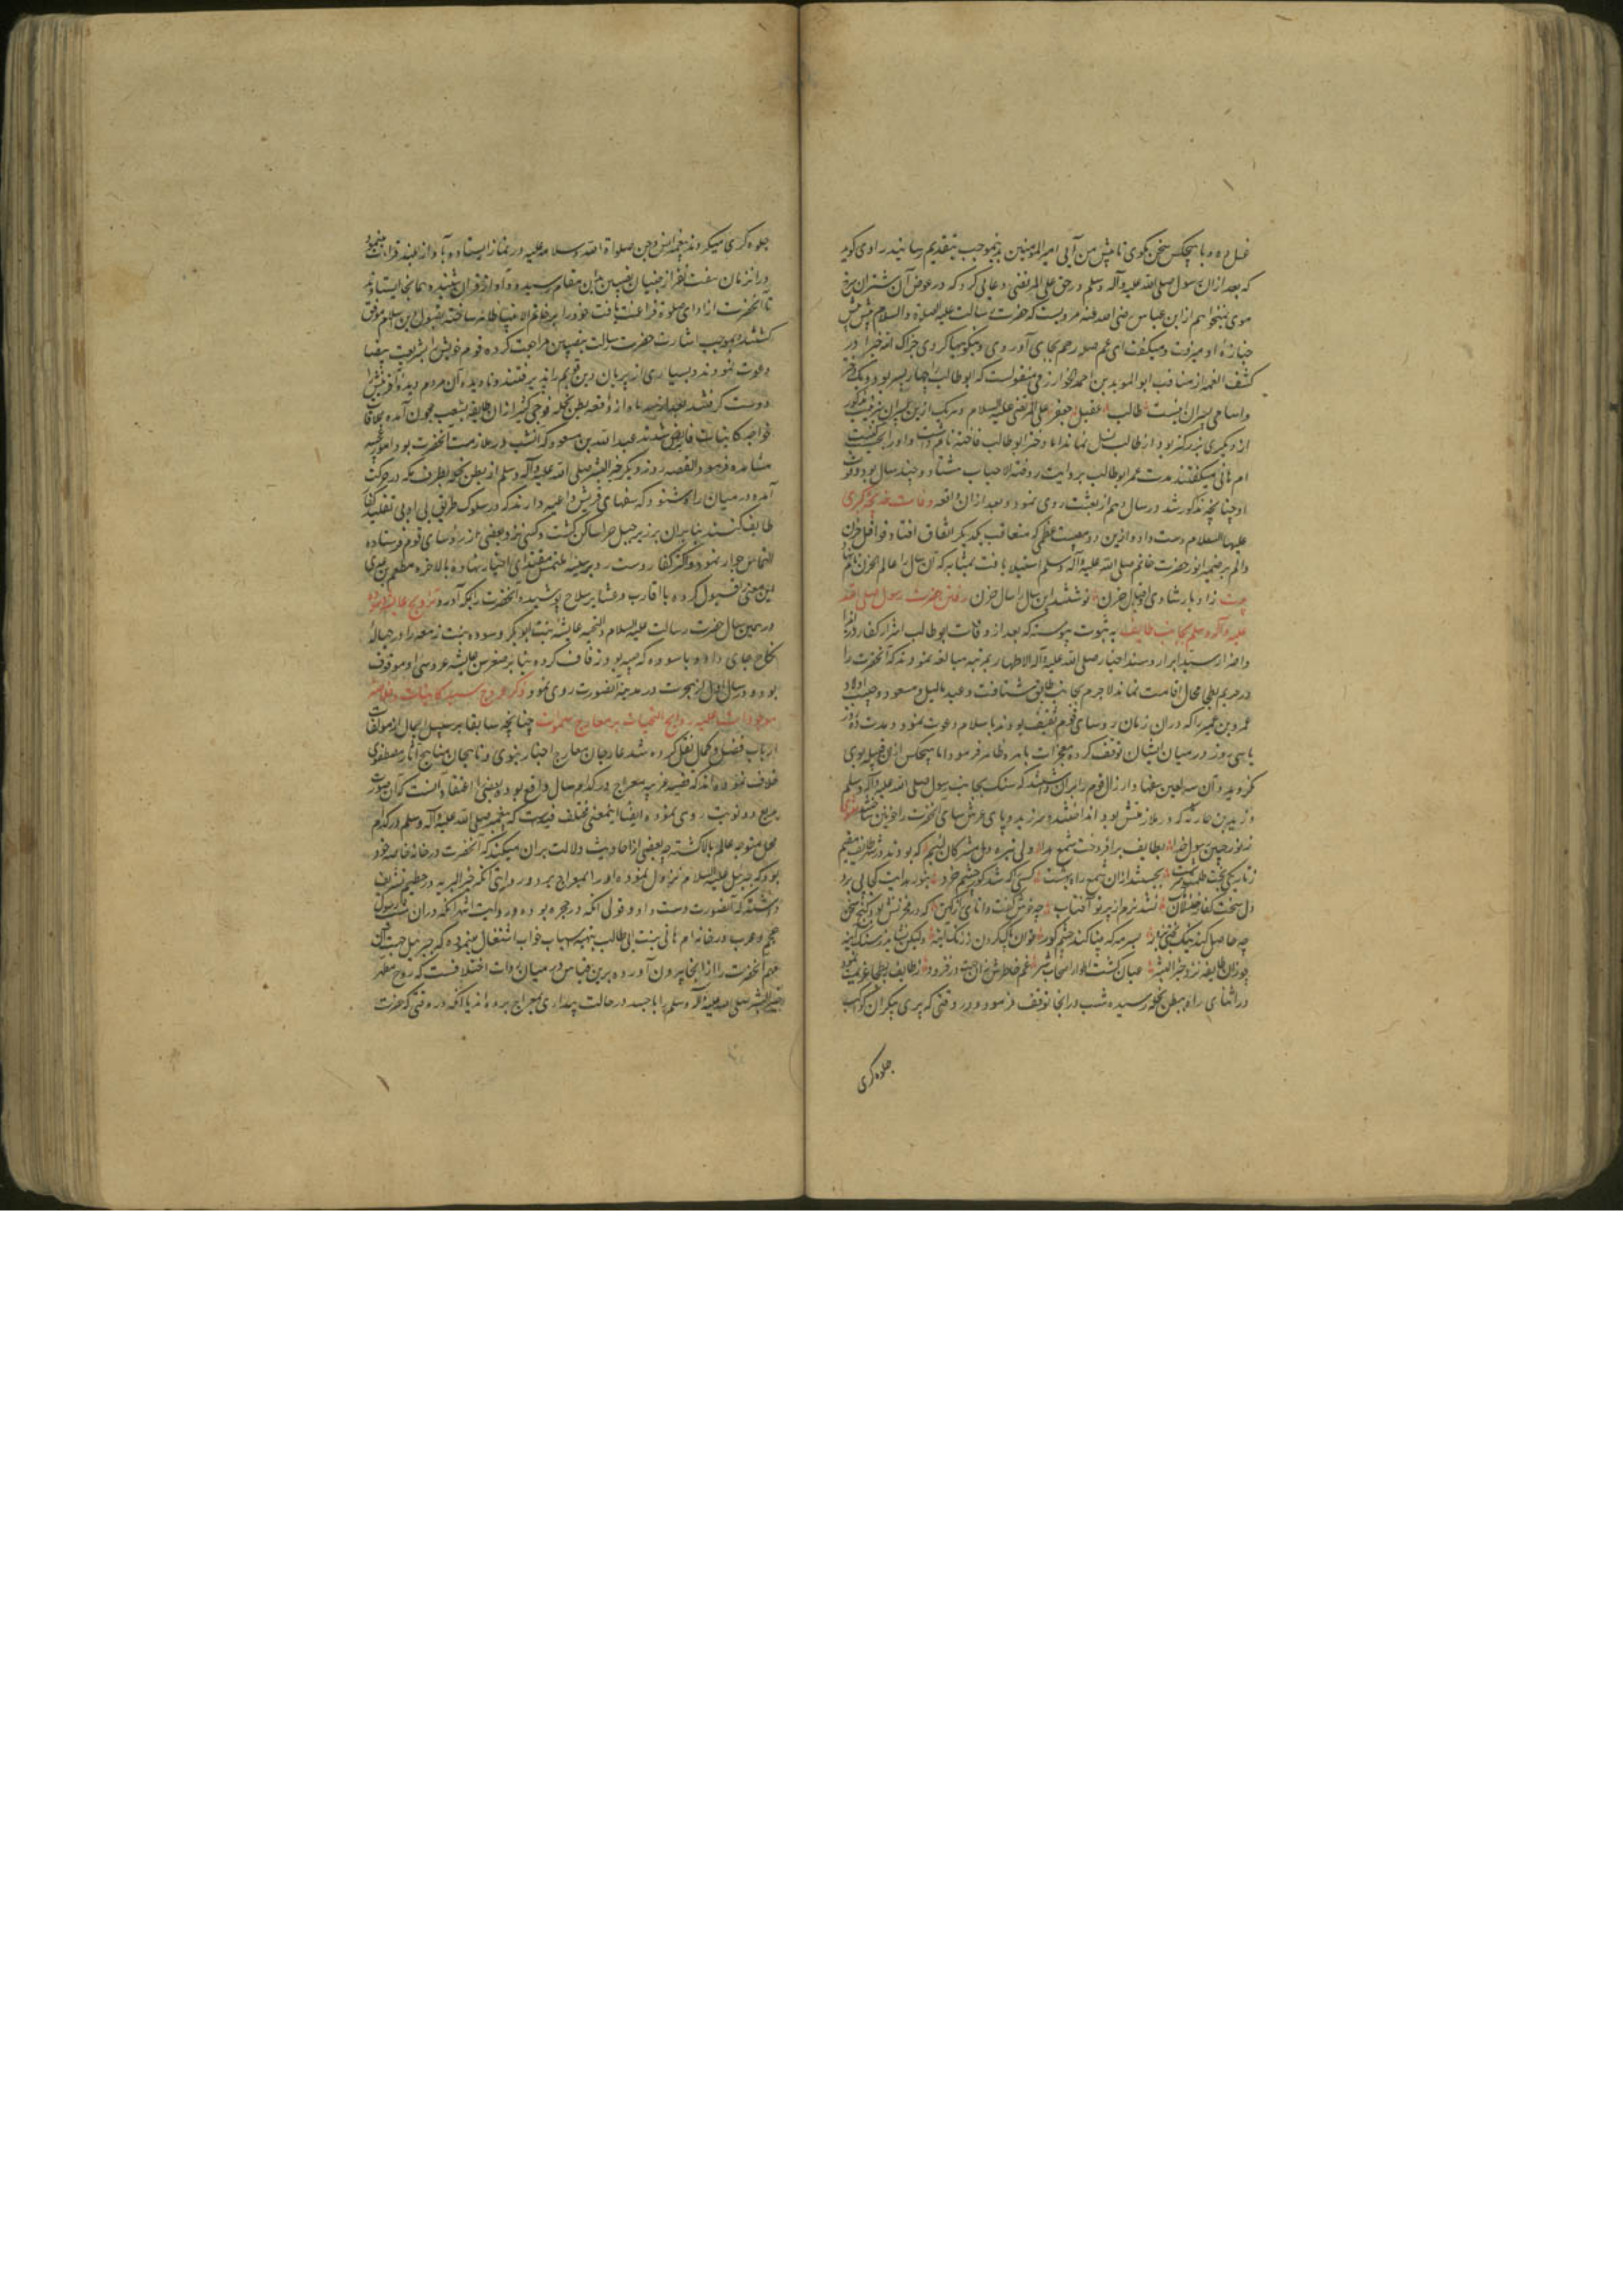 غسل ده و با هیچکس سخن مکوی تا پیش من آیی امیر المومنین بدینموجب بتقدیم رسانید راوی کوید
که بعد ازان رسول صلی الله علیه وآله وسلم در حق علی المرتضی دعایی کرد که در عوض آن شتران سرخ
موی نمیخواهم از ابن عباس رضی الله عنه مرویست که حضرت رسالت علیه الصلوة والسلام پیش پیش
جنازۀ او میرفت و میکفت ای عم صله رحم بجای آوردی و نیکوییها کردی جزاک الله خیرا در
کشف الغمه از مناقب ابو الموید بن احمد الخوارزمی منقولست که ابو طالب را چهار پسر بود و یک دختر
واسامی پسران اینست طالب عقیل جعفر علی المرتضی علیه السلام و هر یک ازین پسران بترتیب مذکور
از دیکری بزرکتر بود از طالب نسل نماند اما دختر ابو طالب فاخته نام داشت و او را بکنیت
ام هانی میکفتند مدت عمر ابو طالب بروایت روضة الاحباب هشتاد و چند سال بود وفات
او چنانچه مذکور شد در سال دهم از بعثت روی نمود و بعد ازان واقعه وفات خدیجه کبری
علیها السلام دست داد و ازین دو مصیبت عظمی که متعاقب یکدیکر اتفاق افتاد قوافل حزن
والم بر ضمیر انور حضرت خاتم صلی الله علیه وآله وسلم استیلا یافت بمثابه که آن سال را عام الحزن نام نهاد
بیت زادبار شادی و اقبال حزن نوشتند این سال را سال حزن رفتن حضرت رسول صلی الله
علیه وآله وسلم بجانب طایف به ثبوت پیوسته که بعد از وفات ابو طالب اشرار کفار در ایذا
واضرار سید ابرار وسند اخیار صلی الله علیه وآله الاطهار بمرتبه مبالغه نمودند که آنحضرت را
در حریم بطحا مجال اقامت نماند لاجرم بجانب طایف شتافت وعبد یالیل و مسعود و حبیب اولاد
عمرو بن عمیر را که دران زمان روسای قوم ثقیف بودند باسلام دعوت نمود و مدت ده روز
یا سی روز در میان ایشان توقف کرده معجزات باهره ظاهر فرمود اما هیچکس ازان قبیله بوی
نکروید وآن سه لعین سفها و ارزال قوم را بران داشتند که سنک بجانب رسول صلی الله علیه وآله وسلم
و زید بن حارثه که در ملازمتش بود انداختند و سر زید و پای عرش سای آنحضرت را خونین ساختند
ز نور جبین رسول خدا بطایف برافروخت شمع هدا ولی تیره دل مشرکان لئیم که بودند در شهر طایف مقیم
زتاریکی بخت ظلمت سرشت بجستند ازان شمع راه بهشت کسی را که شد کور چشم خرد بنور هدایت کجا پی برد
دل سخت کفار خفتان نشد نرم از پرتو آفتاب چه خوش کفت دانای که در مخزنش بود کنج سخن
چه حاصل کند سرمه که بینا کند چشم کور توان پاک کردن ز زنک آینه ولیکن نیاید ز سنک آینه
چو زان طایفه نزد خیر البشر عیان کشت اطوار اصحاب شر غم خاطرش زان جهت در فزود ز طایف ببطحا عزیمت نمود
در اثنای راه ببطن نخله رسیده شب درانجا توقف فرمود و در وقتی که پری پیکران کواکب
جلوه کری
جلوه کری میکردند پیغمبر انس وجن صلواة الله وسلامه علیه در نماز ایستاده بآواز بلند قرائت مینمود
دران زمان هفت نفر از جنیان نصیبین بدین مقام رسیده وآواز قران شنیده همانجا ایستادند
تا آنحضرت از ادای صلوة فراغت یافت خود را بر خاتم الانبیا ظاهر ساخته بقبول دین اسلام موفق
کشتند و بموجب اشارت حضرت رسالت بنصیبین مراجعت کرده قوم خویش را بشریعت بیضا
دعوت نمودند و بسیاری از پریان دین قویم را پذیرفتند ونادیده آن مردم دیدۀ آفرینش را
دوست کرفتند بعد از سه ماه از واقعه بطن نخله فوجی کثیر ازان طایفه بشعب حجون آمده بملاقات
خواجه کاینات فایض شدند عبد الله بن مسعود که آنشب در ملازمت آنحضرت بود امور غریبه
مشاهده فرمود القصه روز دیکر خیر البشر صلی الله علیه وآله وسلم از بطن نخله بطرف مکه در حرکت
آمده در میان راه شنود که سفهای قریش داعیه دارند که در سلوک طریق بی ادبی تقلید کفار
طایف کنند بنابران بر زبر جبل حرا ساکن کشت و کسی نزد بعضی از روسای قوم فرستاده
التماس جوار نمود و اکثر کفار دست رد بر سینه ملتمس مقتدای اخیار نهاده بالاخره مطعم بن عدی
این معنی را قبول کرده با اقارب وعشایر سلاح پوشیده آنحضرت را بمکه آورد تزویج عایشه وسوده
در همین سال حضرت رسالت علیه السلام والتحیه عایشه بنت ابو بکر وسوده بنت زمعه را در حبالۀ
نکاح جای داد و با سوده که ثیبه بود زفاف کرده بنا بر صغر سن عایشه عروسی او موقوف
بوده در سال اول از هجرت در مدینه آنصورت روی نمود ذکر عروج سید کاینات وخلاصه
موجودات علیه روایح التحیات بر معارج سموات چنانچه سابقا بر سبیل اجمال از مولفات
ارباب فضل وکمال نقل کرده شد عارجان معارج اخبار نبوی وناهجان مناهج آثار مصطفوی
خلاف نموده اند که قضیه غریبه معراج در کدام سال واقع بوده و بعضی را اعتقاد آنست که آن صورت
بدیع دو نوبت روی نموده ایضا اینمعنی مختلف فیه است که پیغمبر صلی الله علیه وآله وسلم در کدام
محل متوجه عالم بالا کشته چه بعضی از احادیث دلالت بران میکند که آنحضرت در خانه خاصه خود
بود که جبرئیل علیه السلام نزول نموده او را بمعراج برد و روایتی آنکه خیر البریه در حطیم تشریف
داشته که آنصورت دست داد و قولی آنکه در حجره بوده و روایت اشهر آنکه دران شب رسول
عجم وعرب در خانه ام هانی بنت ابی طالب بتهیه اسباب خواب اشتغال مینموده که جبرئیل جهت آن
مهم آنحضرت را از آنجا بیرون آورده برین قیاس در میان روات اختلافست که روح مطهر
خیر البشر صلی الله علیه وآله وسلم را با جسد در حالت بیداری بمعراج برده اند یا آنکه در وقتی که حضرت